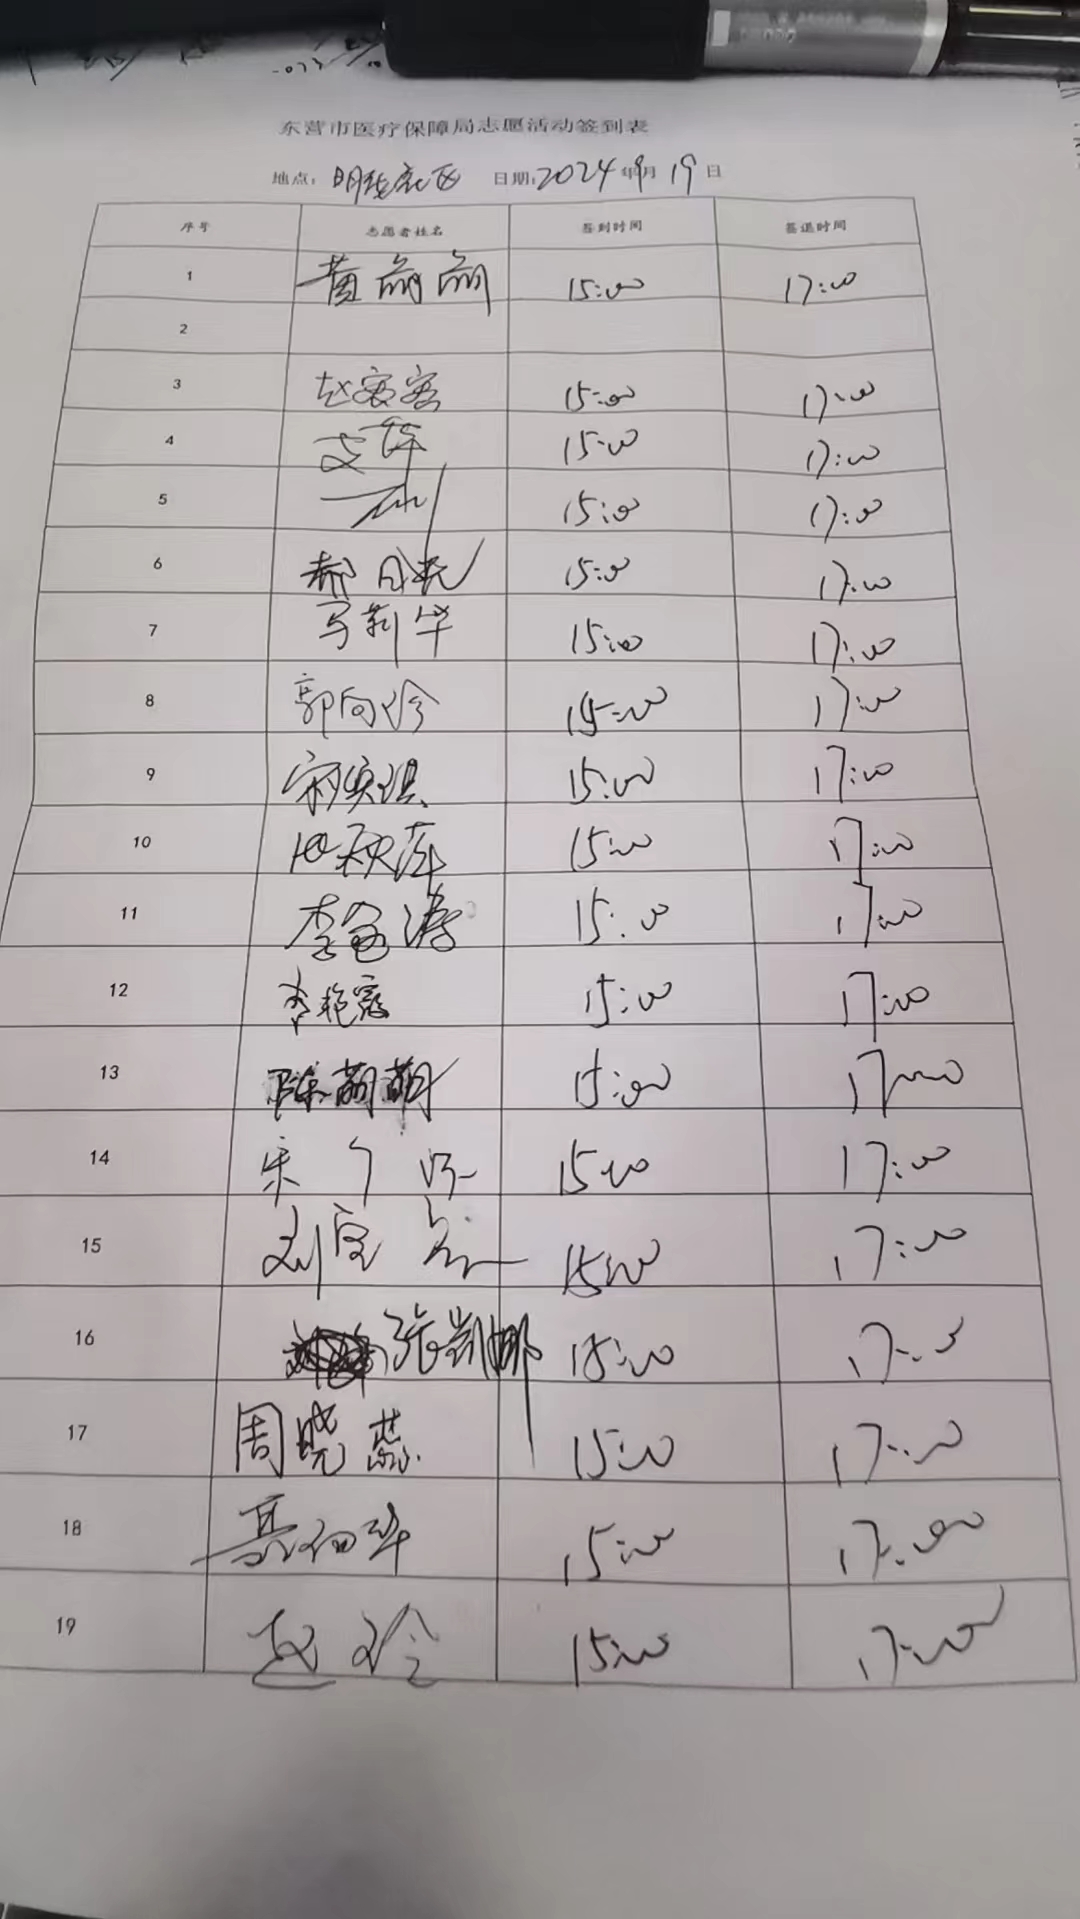 东营市医疗保障局志愿活动签到表
地点: 日期:2024年9月19日
序号 志愿者姓名 签到时间 签退时间
1 黄萌萌 15:00 17:00
2
3 赵蜜蜜 15:00 17:00
4 15:00 17:00
5 15:00 17:00
6 郝 15:00 17:00
7 马莉华 15:00 17:00
8 郭向玲 15:00 17:00
9 15:00 17:00
10 田秋萍 15:00 17:00
11 李 涛 15:00 17:00
12 李艳 15:00 17:00
13 陈萌萌 15:00 17:00
14 宋 15:00 17:00
15 刘 15:00 17:00
16 张凯娜 15:00 17:
17 周晓蕊 15:00 17:00
18 聂 华 15:00 17:00
19 赵玲 15:00 17:00